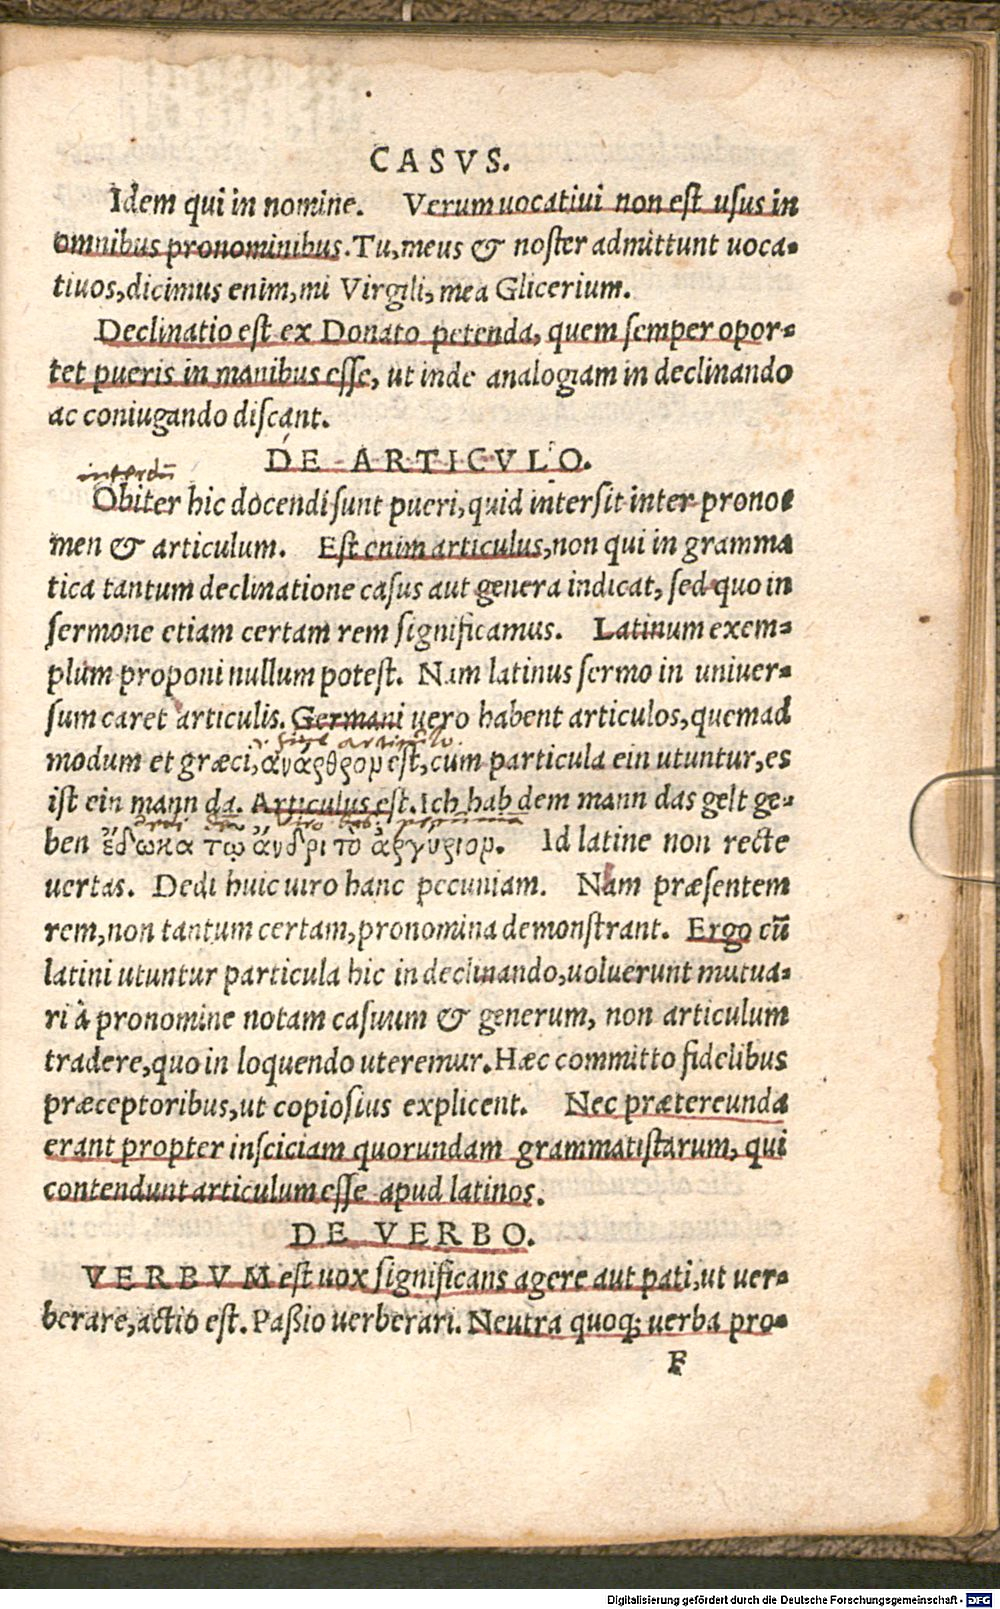 CASVS.
Idem qui in nomine. Verum uocatiui non est usus in
omnibus pronominibus. Tu, meus & noster admittunt uoca-
tiuos, dicimus enim, mi Virgili, mea Glicerium.
Declinatio est ex Donato petenda, quem semper opor-
tet pueris in manibus esse, ut inde analogiam in declinando
ac coniugando discant.
DE ARTICVLO.
interdū
Obiter hic docendi sunt pueri, quid intersit inter prono-
men & articulum. Est enim articulus, non qui in gramma
tica tantum declinatione casus aut genera indicat, sed quo in
sermone etiam certam rem significamus. Latinum exem-
plum proponi nullum potest. Nam latinus sermo in uniuer-
sum caret articulis. Germani uero habent articulos, quemad
sine articulo.
modum et græci, αναρθρον est, cum particula ein utuntur, es
ist ein mann da. Articulus est. Ich hab dem mann das gelt ge-
dedi viro
ben ἔδωκα τῳ ἄνδρι το ἀργυριον. Id latine non recte
uertas. Dedi huic uiro hanc pecuniam. Nam præsentem
rem, non tantum certam, pronomina demonstrant. Ergo cū
latini utuntur particula hic in declinando, uoluerunt mutua-
ri à pronomine notam casuum & generum, non articulum
tradere, quo in loquendo uteremur. Hæc committo fidelibus
præceptoribus, ut copiosius explicent. Nec prætereunda
erant propter insciciam quorundam grammatistarum, qui
contendunt articulum esse apud latinos.
DE VERBO.
VERBVM est uox significans agere aut pati, ut uer-
berare, actio est. Paßio uerberari. Neutra quoq; uerba pro-
F
Digitalisierung gefördert durch die Deutsche Forschungsgemeinschaft - DFG